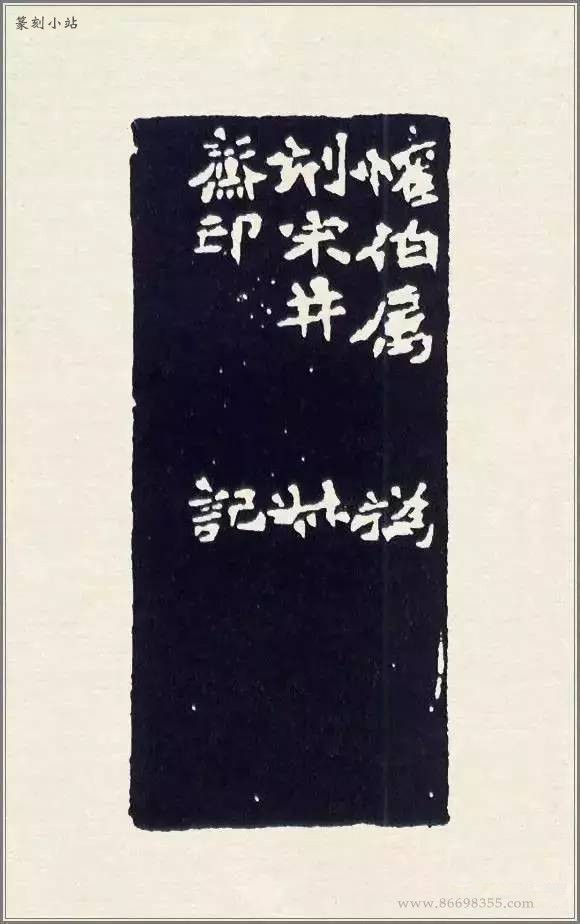 篆刻小站
伯属
刻宋井
齋印
撝
叔
記
www.86698355.com